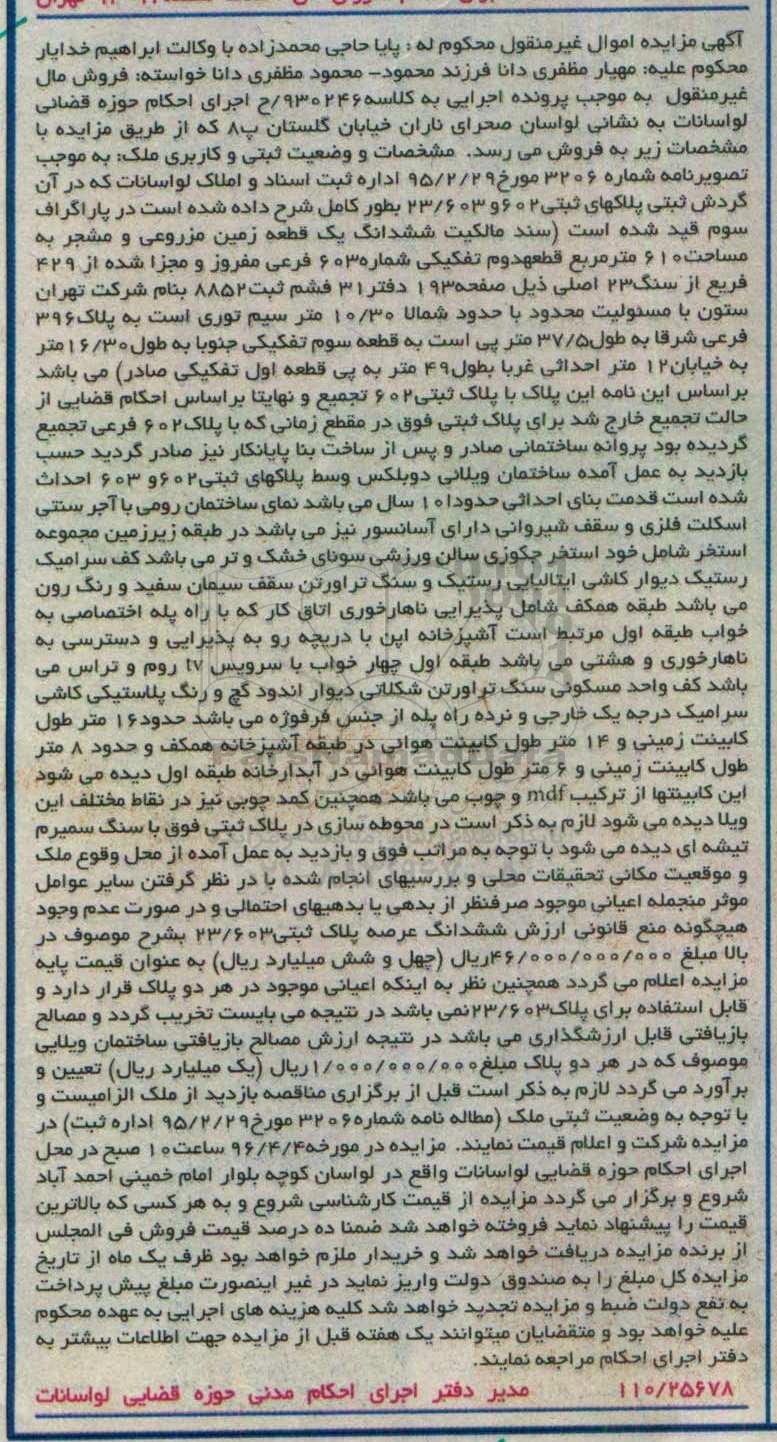 آگهی مزایده اموال غیرمنقول محکوم له : پایا حاجی محمدزاده با وکالت ابراهیم خدایار
محکوم علیه: مهیار مظفری دانا فرزند محمود- محمود مظفری دانا خواسته: فروش مال
غیرمنقول به موجب پرونده اجرایی به کلاسه۹۳۰۲۴۶/ح اجرای احکام حوزه قضائی
لواسانات به نشانی لواسان صحرای ناران خیابان گلستان پ۸ که از طریق مزایده با
مشخصات زیر به فروش می رسد. مشخصات و وضعیت ثبتی و کاربری ملک: به موجب
تصویرنامه شماره ۳۲۰۶ مورخ۹۵/۲/۲۹ اداره ثبت اسناد و املاک لواسانات که در آن
گردش ثبتی پلاکهای ثبتی۶۰۲و ۲۳/۶۰۳ بطور کامل شرح داده شده است در پاراگراف
سوم قید شده است (سند مالکیت ششدانگ یک قطعه زمین مزروعی و مشجر به
مساحت۶۱۰ مترمربع قطعهدوم تفکیکی شماره۶۰۳ فرعی مفروز و مجزا شده از ۴۲۹
فریع از سنگ۲۳ اصلی ذیل صفحه۱۹۳ دفتر۳۱ فشم ثبت۸۸۵۲ بنام شرکت تهران
ستون با مسئولیت محدود با حدود شمالا ۱۰/۳۰ متر سیم توری است به پلاک۳۹۶
فرعی شرقا به طول۳۷/۵ متر پی است به قطعه سوم تفکیکی جنوبا به طول۱۶/۳۰متر
به خیابان۱۲ متر احداثی غربا بطول۴۹ متر به پی قطعه اول تفکیکی صادر) می باشد
براساس این نامه این پلاک با پلاک ثبتی۶۰۲ تجمیع و نهایتا براساس احکام قضایی از
حالت تجمیع خارج شد برای پلاک ثبتی فوق در مقطع زمانی که با پلاک۶۰۲ فرعی تجمیع
گردیده بود پروانه ساختمانی صادر و پس از ساخت بنا پایانکار نیز صادر گردید حسب
بازدید به عمل آمده ساختمان ویلائی دوبلکس وسط پلاکهای ثبتی۶۰۲و ۶۰۳ احداث
شده است قدمت بنای احداثی حدودا۱۰ سال می باشد نمای ساختمان رومی با آجر سنتی
اسکلت فلزی و سقف شیروانی دارای آسانسور نیز می باشد در طبقه زیرزمین مجموعه
استخر شامل خود استخر جکوزی سالن ورزشی سونای خشک و تر می باشد کف سرامیک
رستیک دیوار کاشی ایتالیایی رستیک و سنگ تراورتن سقف سیمان سفید و رنگ رون
می باشد طبقه همکف شامل پذیرایی ناهارخوری اتاق کار که با راه پله اختصاصی به
خواب طبقه اول مرتبط است آشپزخانه اپن با دریچه رو به پذیرایی و دسترسی به
ناهارخوری و هشتی می باشد طبقه اول چهار خواب با سرویس tv روم و تراس می
باشد کف واحد مسکونی سنگ تراورتن شکلاتی دیوار اندود گچ و رنگ پلاستیکی کاشی
سرامیک درجه یک خارجی و نرده راه پله از جنس فرفوژه می باشد حدود۱۶ متر طول
کابینت زمینی و ۱۴ متر طول کابینت هوائی در طبقه آشپزخانه همکف و حدود ۸ متر
طول کابینت زمینی و ۶ متر طول کابینت هوائی در آبدارخانه طبقه اول دیده می شود
این کابینتها از ترکیب mdf و چوب می باشد همچنین کمد چوبی نیز در نقاط مختلف این
ویلا دیده می شود لازم به ذکر است در محوطه سازی در پلاک ثبتی فوق با سنگ سمیرم
تیشه ای دیده می شود با توجه به مراتب فوق و بازدید به عمل آمده از محل وقوع ملک
و موقعیت مکانی تحقیقات محلی و بررسیهای انجام شده با در نظر گرفتن سایر عوامل
موثر منجمله اعیانی موجود صرفنظر از بدهی یا بدهیهای احتمالی و در صورت عدم وجود
هیچگونه منع قانونی ارزش ششدانگ عرصه پلاک ثبتی۲۳/۶۰۳ بشرح موصوف در
بالا مبلغ ۴۶/۰۰۰/۰۰۰/۰۰۰ریال (چهل و شش میلیارد ریال) به عنوان قیمت پایه
مزایده اعلام می گردد همچنین نظر به اینکه اعیانی موجود در هر دو پلاک قرار دارد و
قابل استفاده برای پلاک۲۳/۶۰۳نمی باشد در نتیجه می بایست تخریب گردد و مصالح
بازیافتی قابل ارزشگذاری می باشد در نتیجه ارزش مصالح بازیافتی ساختمان ویلایی
موصوف که در هر دو پلاک مبلغ۱/۰۰۰/۰۰۰/۰۰۰ریال (یک میلیارد ریال) تعیین و
برآورد می گردد لازم به ذکر است قبل از برگزاری مناقصه بازدید از ملک الزامیست و
با توجه به وضعیت ثبتی ملک (مطاله نامه شماره۳۲۰۶ مورخ۹۵/۲/۲۹ اداره ثبت) در
مزایده شرکت و اعلام قیمت نمایند. مزایده در مورخه۹۶/۴/۴ ساعت۱۰ صبح در محل
اجرای احکام حوزه قضایی لواسانات واقع در لواسان کوچه بلوار امام خمینی احمد آباد
شروع و برگزار می گردد مزایده از قیمت کارشناسی شروع و به هر کسی که بالاترین
قیمت را پیشنهاد نماید فروخته خواهد شد ضمنا ده درصد قیمت فروش فی المجلس
از برنده مزایده دریافت خواهد شد و خریدار ملزم خواهد بود ظرف یک ماه از تاریخ
مزایده کل مبلغ را به صندوق دولت واریز نماید در غیر اینصورت مبلغ پیش پرداخت
به نفع دولت ضبط و مزایده تجدید خواهد شد کلیه هزینه های اجرایی به عهده محکوم
علیه خواهد بود و متقضایان میتوانند یک هفته قبل از مزایده جهت اطلاعات بیشتر به
دفتر اجرای احکام مراجعه نمایند.
۱۱۰/۲۵۶۷۸ مدیر دفتر اجرای احکام مدنی حوزه قضایی لواسانات